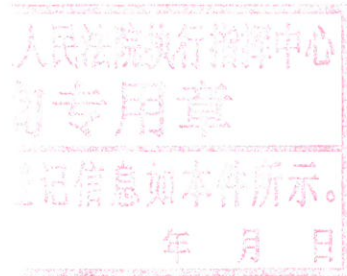 人民法院执行指挥中心
专用章
记信息如本件所示。
年 月 日